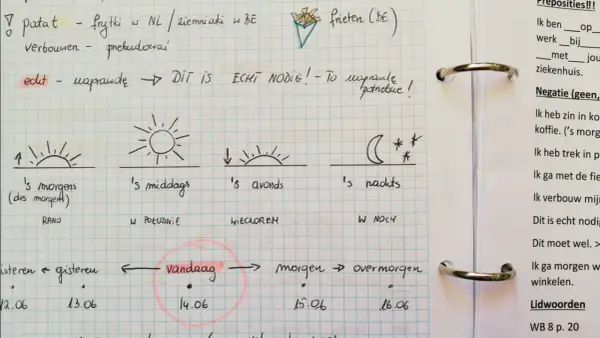 ! patat - frytki w NL / ziemniaki w BE
frieten (BE)
verbouwen - przebudować
echt - naprawdę → DIT IS ECHT NODIG! - To naprawdę potrzebne!
's morgens
(des morgens)
RANO
's middags
W POŁUDNIE
's avonds
WIECZOREM
's nachts
W NOCY
isteren ← gisteren ← vandaag → morgen → overmorgen
12.06 13.06 14.06 15.06 16.06
Preposities!!!
Ik ben ___op_
werk __bij___
___met___ jou
ziekenhuis.
Negatie (geen,
Ik heb zin in ko
koffie. ('s morg
Ik heb trek in p
Ik ga met de fie
Ik verbouw mij
Dit is echt nodi
Dit moet wel. >
Ik ga morgen w
winkelen.
Lidwoorden
WB 8 p. 20